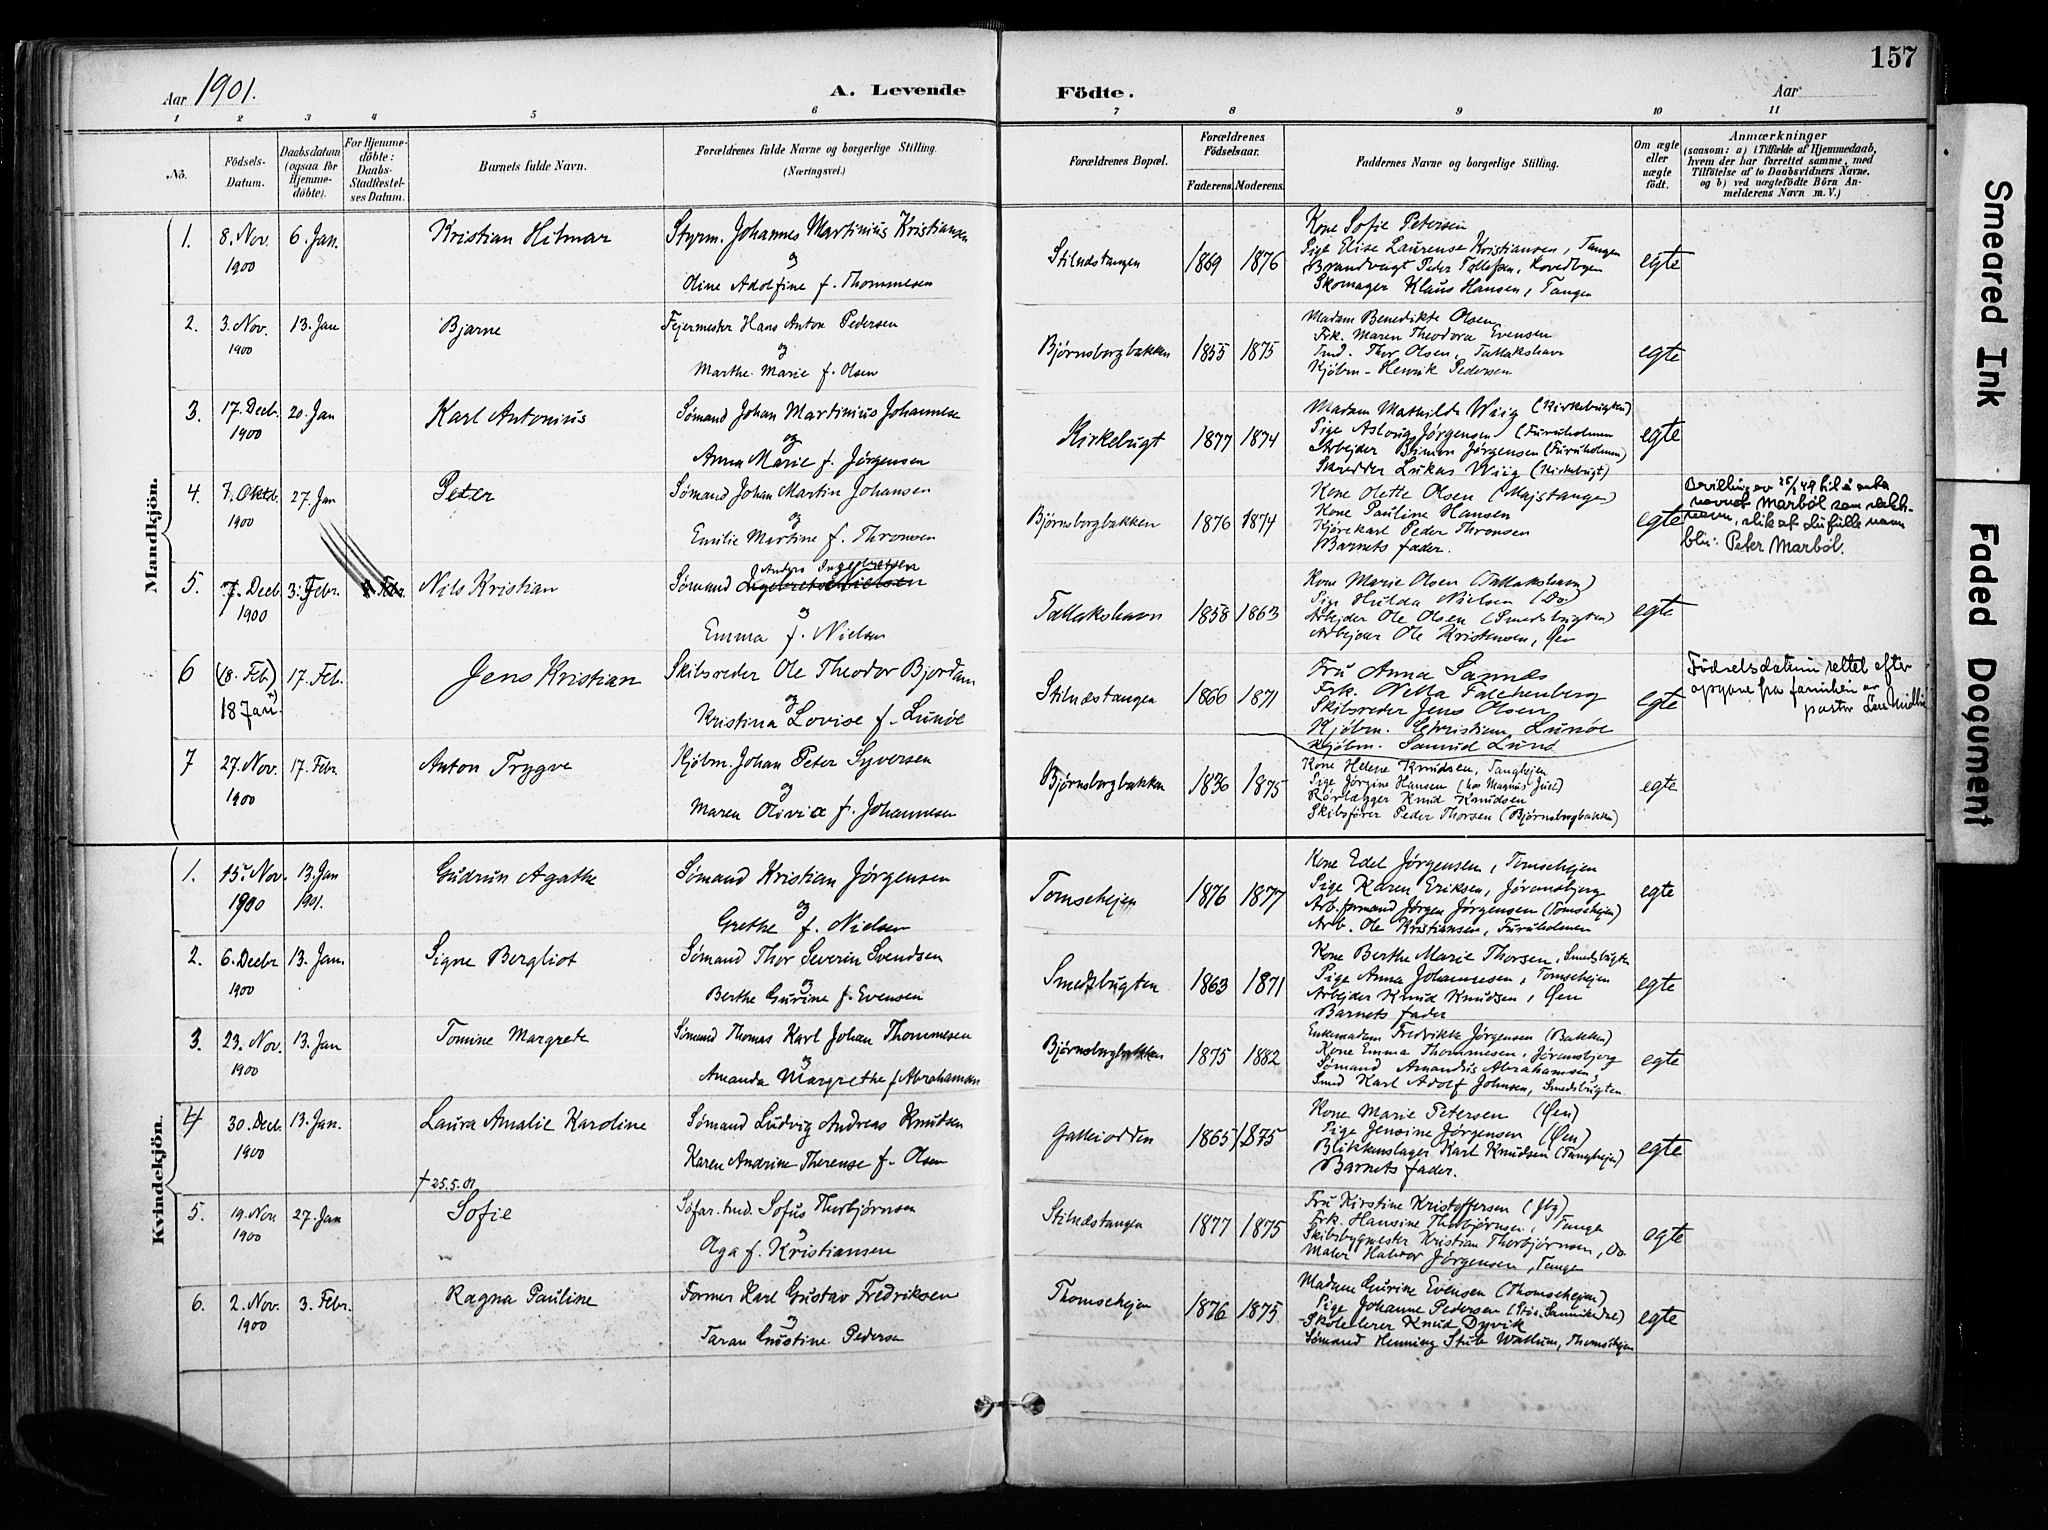 157
Aar 1901.
A. Levende Födte.
Aar
1 2 3 4 5 6 7 8 9 10 11
No.
Födsels-Datum.
Daabsdatum (ogsaa for Hjemme-döbte).
For Hjemme-döbte: Daabs-Stadfæstel-ses Datum.
Barnets fulde Navn.
Forældrenes fulde Navne og borgerlige Stilling.
(Næringsvei.)
Forældrenes Bopæl.
Forældrenes Födselsaar.
Faderens. Moderens.
Faddernes Navne og borgerlige Stilling.
Om ægte eller uægte födt.
Anmærkninger
(saasom: a) i Tilfælde af Hjemmedaab, hvem der har forrettet samme, med Tilföielse af to Daabsvidners Navne, og b) ved uægtefödte Börn Anmelderens Navn m. V.)
Mandkjön.
1. 8. Nov. 1900 6. Jan. Kristian Hilmar
Styrm. Johannes Martinius Kristiansen
og
Oline Adolfine f. Thommesen
Stilnæstangen 1869 1876
Kone Sofie Petersen
Pige Elise Laurense Kristiansen, Tangen
Brandvagt Peder Tallefsen,
Skomager Klaus Hansen, Tangen
egte
2. 3. Nov. 1900 13. Jan Bjarne
Fejermester Hans Anton Pedersen
og
Marthe Marie f. Olsen
Bjørnsborgbakken 1855 1875
Madam Benedikte Olsen
Frk. Maren Theodora Evensen
Tmd. Thor Olsen, Tallakshavn
Kjøbm. Henrik Pedersen
egte
3. 17. Decb. 1900 20. Jan Karl Antonius
Sømand Johan Martinius Johannesen
og
Anna Marie f. Jørgensen
Kirkebugt 1877 1874
Madam Mathilde Wiig (Kirkebugten)
Pige Aslaug Jørgensen (Furuholmen
Arbejder Simon Jørgensen (Furuholmen)
Skrædder Lukas Wiig (Kirkebugt)
egte
4. 7. Oktb. 1900 27. Jan Peter
Sømand Johan Martin Johansen
og
Emilie Martine f. Thronsen
Bjørnsborgbakken 1876 1874
Kone Olette Olsen (Majstangen)
Kone Pauline Hansen
Kjørekarl Peder Thronsen
Barnets fader.
egte
Bevilling av 25/1 49 til å anta
navnet Marbøl som slekts-
navn, slik at du fulle navn
blir: Peter Marbøl.
5. 7. Decb 1900 3. Febr. Febr. Nils Kristian
Anders Ingebretsen
Sømand Ingebretsen Nielsen
og
Emma f. Nielsen
Tallakshavn 1858 1863
Kone Marie Olsen (Tallakshavn)
Pige Hulda Nielsen (Do)
Arbejder Ole Olsen (Smedsbugten)
Arbejder Ole Kristensen, Øen
egte
6 (8. Feb.) 18 Jan. 17. Feb. Jens Kristian
Skibsreder Ole Theodor Bjordam
og
Kristina Lovise f. Lunøe
Stilnæstangen 1866 1871
Fru Anna Sannæs
Frk. Netta Falchenberg
Skibsreder Jens Olsen
Kjøbm. Christian Lunøe
Kjøbm. Samud Lund
egte
Fødselsdatum rettet efter
opgave fra familien av
pastor
7 27. Nov. 1900 17. Febr. Anton Trygve
Kjøbm. Johan Peter Syversen
og
Maren Olivia f. Johannesen
Bjørnsborgbakken 1836 1875
Kone Helene Knudsen, Tanghejen
Pige Jørgine Hansen (hos Magnus Juel)
Rørlægger Knud Knudsen
Skibsfører Peder Thorsen (Bjørnsborgbakken)
egte
Kvindekjön.
1. 15. Nov. 1900 13. Jan 1901. Gudrun Agathe
Sømand Kristian Jørgensen
og
Grethe f. Nielsen
Tomsehejen 1876 1877
Kone Edel Jørgensen, Tomsehejen
Pige Karen Eriksen, Jøransbjerg
Arb. formand Jørgen Jørgensen (Tomsehejen)
Arb. Ole Kristiansen, Furuholmen
egte
2. 6. Decbr 1900 13. Jan. Signe Bergliot
Sømand Thor Severin Svendsen
og
Berthe Gurine f. Evensen
Smedsbugten 1863 1871
Kone Berthe Marie Thorsen, Smedsbugten
Pige Anna Johannesen, Tomsehejen
Arbejder Knud Knudsen, Øen
Barnets fader
egte
3. 23. Nov. 1900 13. Jan Tomine Margrete
Sømand Thomas Karl Johan Thommesen
og
Amanda Margrethe f. Abrahamsen
Bjørnsborgbakken 1875 1882
Enkemadam Fredrikke Jørgensen (Bakken)
Kone Emma Thommesen, Jøransbjerg
Sømand Amandus Abrahamsen,
Smed Karl Adolf Johnsen, Smedsbugten.
egte
4 30. Decb. 1900 13. Jan. Laura Amalie Karoline
† 25.5.01
Sømand Ludvig Andreas Knudsen
Karen Andrine Therense f. Olsen
Galeiodden 1865 1875
Kone Marie Petersen (Øen)
Pige Jensine Jørgensen (Øen)
Blikkenslager Karl Knudsen (Tanghejen)
Barnets fader.
egte
5. 19. Nov. 1900 27. Jan Sofie
Søfar. tmd. Sofus Thorbjørnsen
og
Olga f. Kristiansen
Stilnæstangen 1877 1875
Fru Kirstine Kristoffersen (Jbg)
Frk. Hansine Thorbjørnsen, Tangen
Skibsbygmester Kristian Thorbjørnsen, Do
Maler Halvor Jørgensen, Tangen
egte
6. 2. Nov. 1900 3. Febr. Ragna Pauline
Former Karl Gustav Fredriksen
og
Taran Gustine Pedersen
Thomsehejen 1876 1875
Madam Gurine Evensen (Thomsehejen)
Pige Johanne Pedersen
Skolelærer Knud Dyvik
Sømand Henning Stub Wallum, Thomsehejen
egte
Smeared Ink
Faded Document